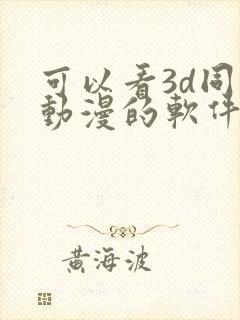 可以看3d同
動漫的軟件
黃海波